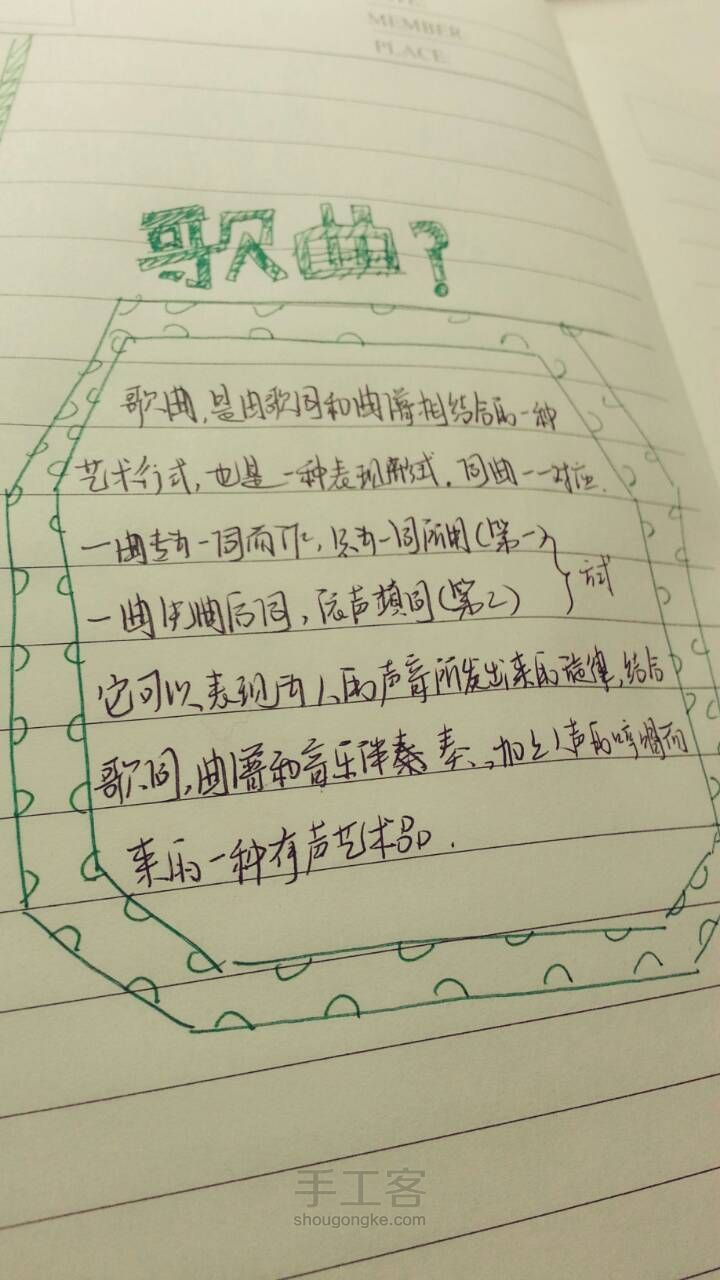 MEMBER
PLACE
歌曲?
歌曲,是由歌词和曲谱相结合的一种
艺术行式,也是一种表现形式.词曲一一对应.
一曲专为一词而作,只为一词所用(第一)
一曲先曲后词,依声填词(第2)
方式
它可以表现为人的声音所发出来的旋律,结合
歌词,曲谱和音乐伴奏 奏.加上人声的哼唱而
来的一种有声艺术品.
手工客
shougongke.com